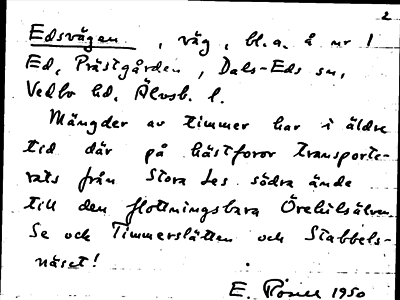 2
Edsvägen, väg, bl.a. å nr 1
Ed, Prästgården, Dals-Eds sn,
Vedbo hd, Älvsb. l.
Mängder av timmer har i äldre
tid där på hästforor transporte-
rats från Stora Les södra ände
till den flottningsbara Örekilsälven.
Se och Timmerslätten och Stabbels-
näset!
E. 1950